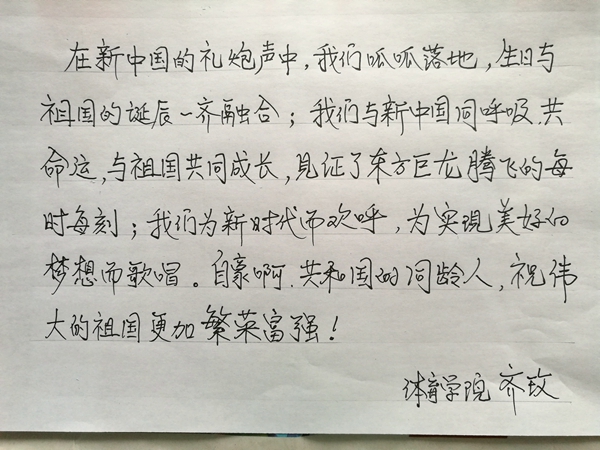 在新中国的礼炮声中，我们呱呱落地，生日与
祖国的诞辰一齐融合；我们与新中国同呼吸.共
命运，与祖国共同成长，见证了东方巨龙腾飞的每
时每刻；我们为新时代而欢呼，为实现美好的
梦想而歌唱。自豪啊.共和国的同龄人，祝伟
大的祖国更加繁荣富强！
体育学院 齐玫